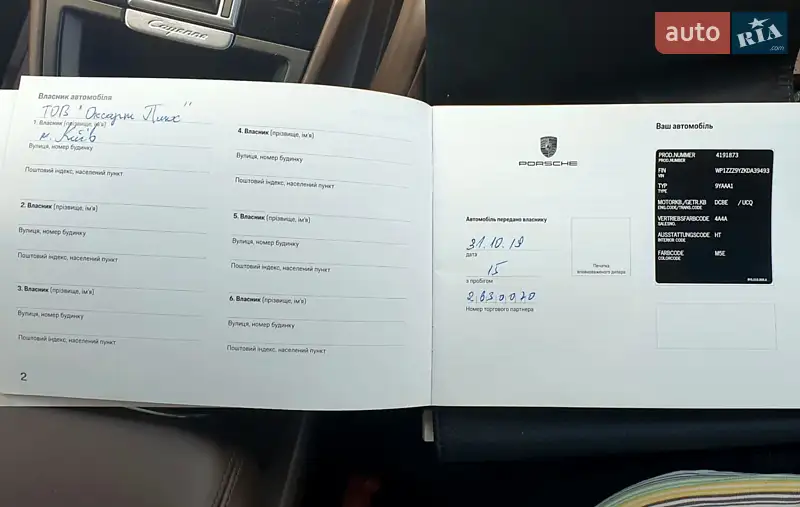 Cayenne
auto RIA .com
Власник автомобіля
ТОВ "
1. Власник (прізвище, ім'я)
м. Київ
Вулиця, номер будинку
Поштовий індекс, населений пункт
2. Власник (прізвище, ім'я)
Вулиця, номер будинку
Поштовий індекс, населений пункт
3. Власник (прізвище, ім'я)
Вулиця, номер будинку
Поштовий індекс, населений пункт
2
4. Власник (прізвище, ім'я)
Вулиця, номер будинку
Поштовий індекс, населений пункт
5. Власник (прізвище, ім'я)
Вулиця, номер будинку
Поштовий індекс, населений пункт
6. Власник (прізвище, ім'я)
Вулиця, номер будинку
Поштовий індекс, населений пункт
PORSCHE
Автомобіль передано власнику
31.10.19
дата
15
з пробігом
2630020
Номер торгового партнера
Печатка
вповноваженого дилера
Ваш автомобіль
PROD.NUMMER 4191873
PROD.NUMBER
FIN WP1ZZZ9YZKDA39493
VIN
TYP 9YAAA1
TYPE
MOTORKB./GETR.KB DCBE / UCQ
ENG.CODE/TRANS.CODE
VERTRIEBSFARBCODE 4A4A
SALESNO.
AUSSTATTUNGSCODE HT
INTERIOR CODE
FARBCODE M5E
COLORCODE